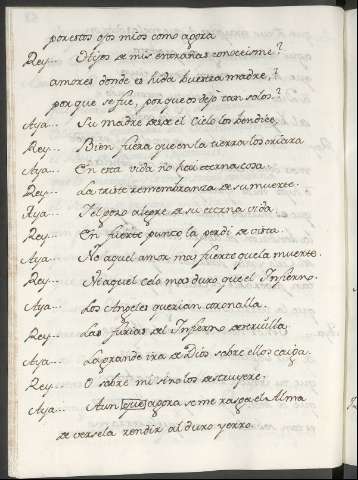 por estos ojos mios como agora
Rey... Hijos de mis entrañas conoceisme?
amores donde es hida buestra madre,?
por que se fue, por que os dejo tan solos?
Aya... Su madre desde el Cielo los bendice.
Rey... Bien fuera que en la tierra los criara
Aya... En esta vida no hai eterna cosa.
Rey... La triste remembranza de su muerte.
Aya... I el gozo alegre de su eterna vida.
Rey... En fuerte punto la perdi de vista.
Aya... No aquel amor mas fuerte que la muerte.
Rey... Ni aquel celo mas duro que el Infierno.
Aya... Los Angeles querian coronalla.
Rey... Las furias del Infierno destruilla.
Aya... La grande ira de Dios sobre ellos caiga.
Rey... O sobre mi sino los destruyere.
Aya... Aun que agora se me rasga el Alma
de versela rendir al duro yerro.